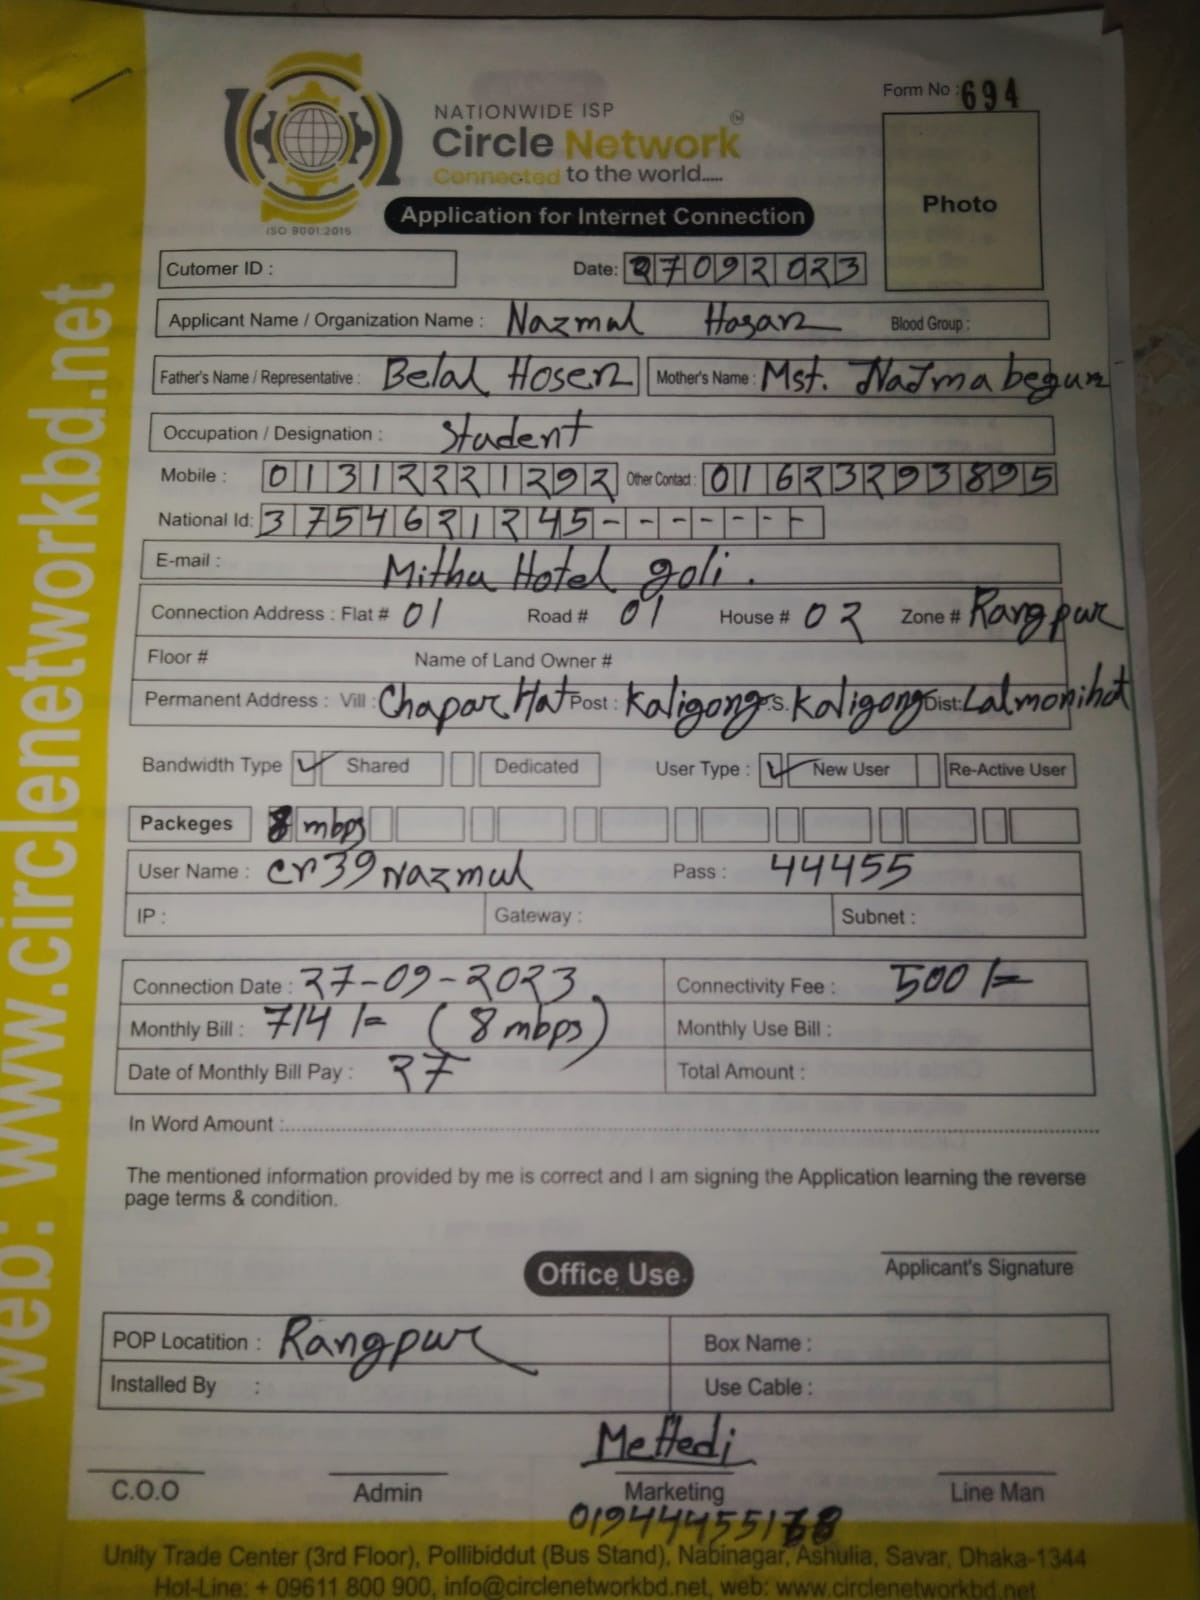 Form No : 694
NATIONWIDE ISP
Circle Network
Connected to the world.....
ISO 9001:2015
Application for Internet Connection
Photo
Cutomer ID :
Date: 27092023
Applicant Name / Organization Name : Nazmul Hasan Blood Group :
Father's Name / Representative : Belal Hosen Mother's Name : Mst. Nazma begum
Occupation / Designation : Student
Mobile : 01312221292 Other Contact : 01623293895
National Id: 3754621245-------
E-mail : Mithu Hotel goli.
Connection Address : Flat # 01 Road # 01 House # 02 Zone # Rangpur
Floor # Name of Land Owner #
Permanent Address : Vill : Chapar Hat Post : Kaligong P.S. Kaligong Dist: Lalmonihat
Bandwidth Type ✓ Shared Dedicated User Type : ✓ New User Re-Active User
Packeges 8 mbps
User Name : cn39nazmul Pass : 44455
IP : Gateway : Subnet :
Connection Date : 27-09-2023 Connectivity Fee : 500/=
Monthly Bill : 714/= (8 mbps) Monthly Use Bill :
Date of Monthly Bill Pay : 27 Total Amount :
In Word Amount :
The mentioned information provided by me is correct and I am signing the Application learning the reverse
page terms & condition.
Applicant's Signature
Office Use
POP Locatition : Rangpur Box Name :
Installed By : Use Cable :
Mehedi
C.O.O Admin Marketing Line Man
Unity Trade Center (3rd Floor), Pollibiddut (Bus Stand), Nabinagar, Ashulia, Savar, Dhaka-1344
Hot-Line: + 09611 800 900, info@circlenetworkbd.net, web: www.circlenetworkbd.net
web: www.circlenetworkbd.net